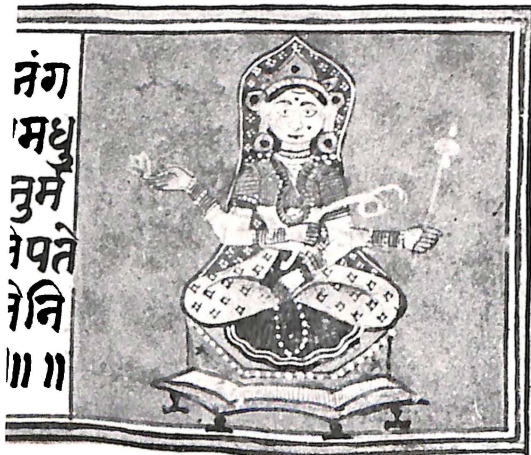 तंग
मधु
तुर्मे
पते
नि
॥ ॥